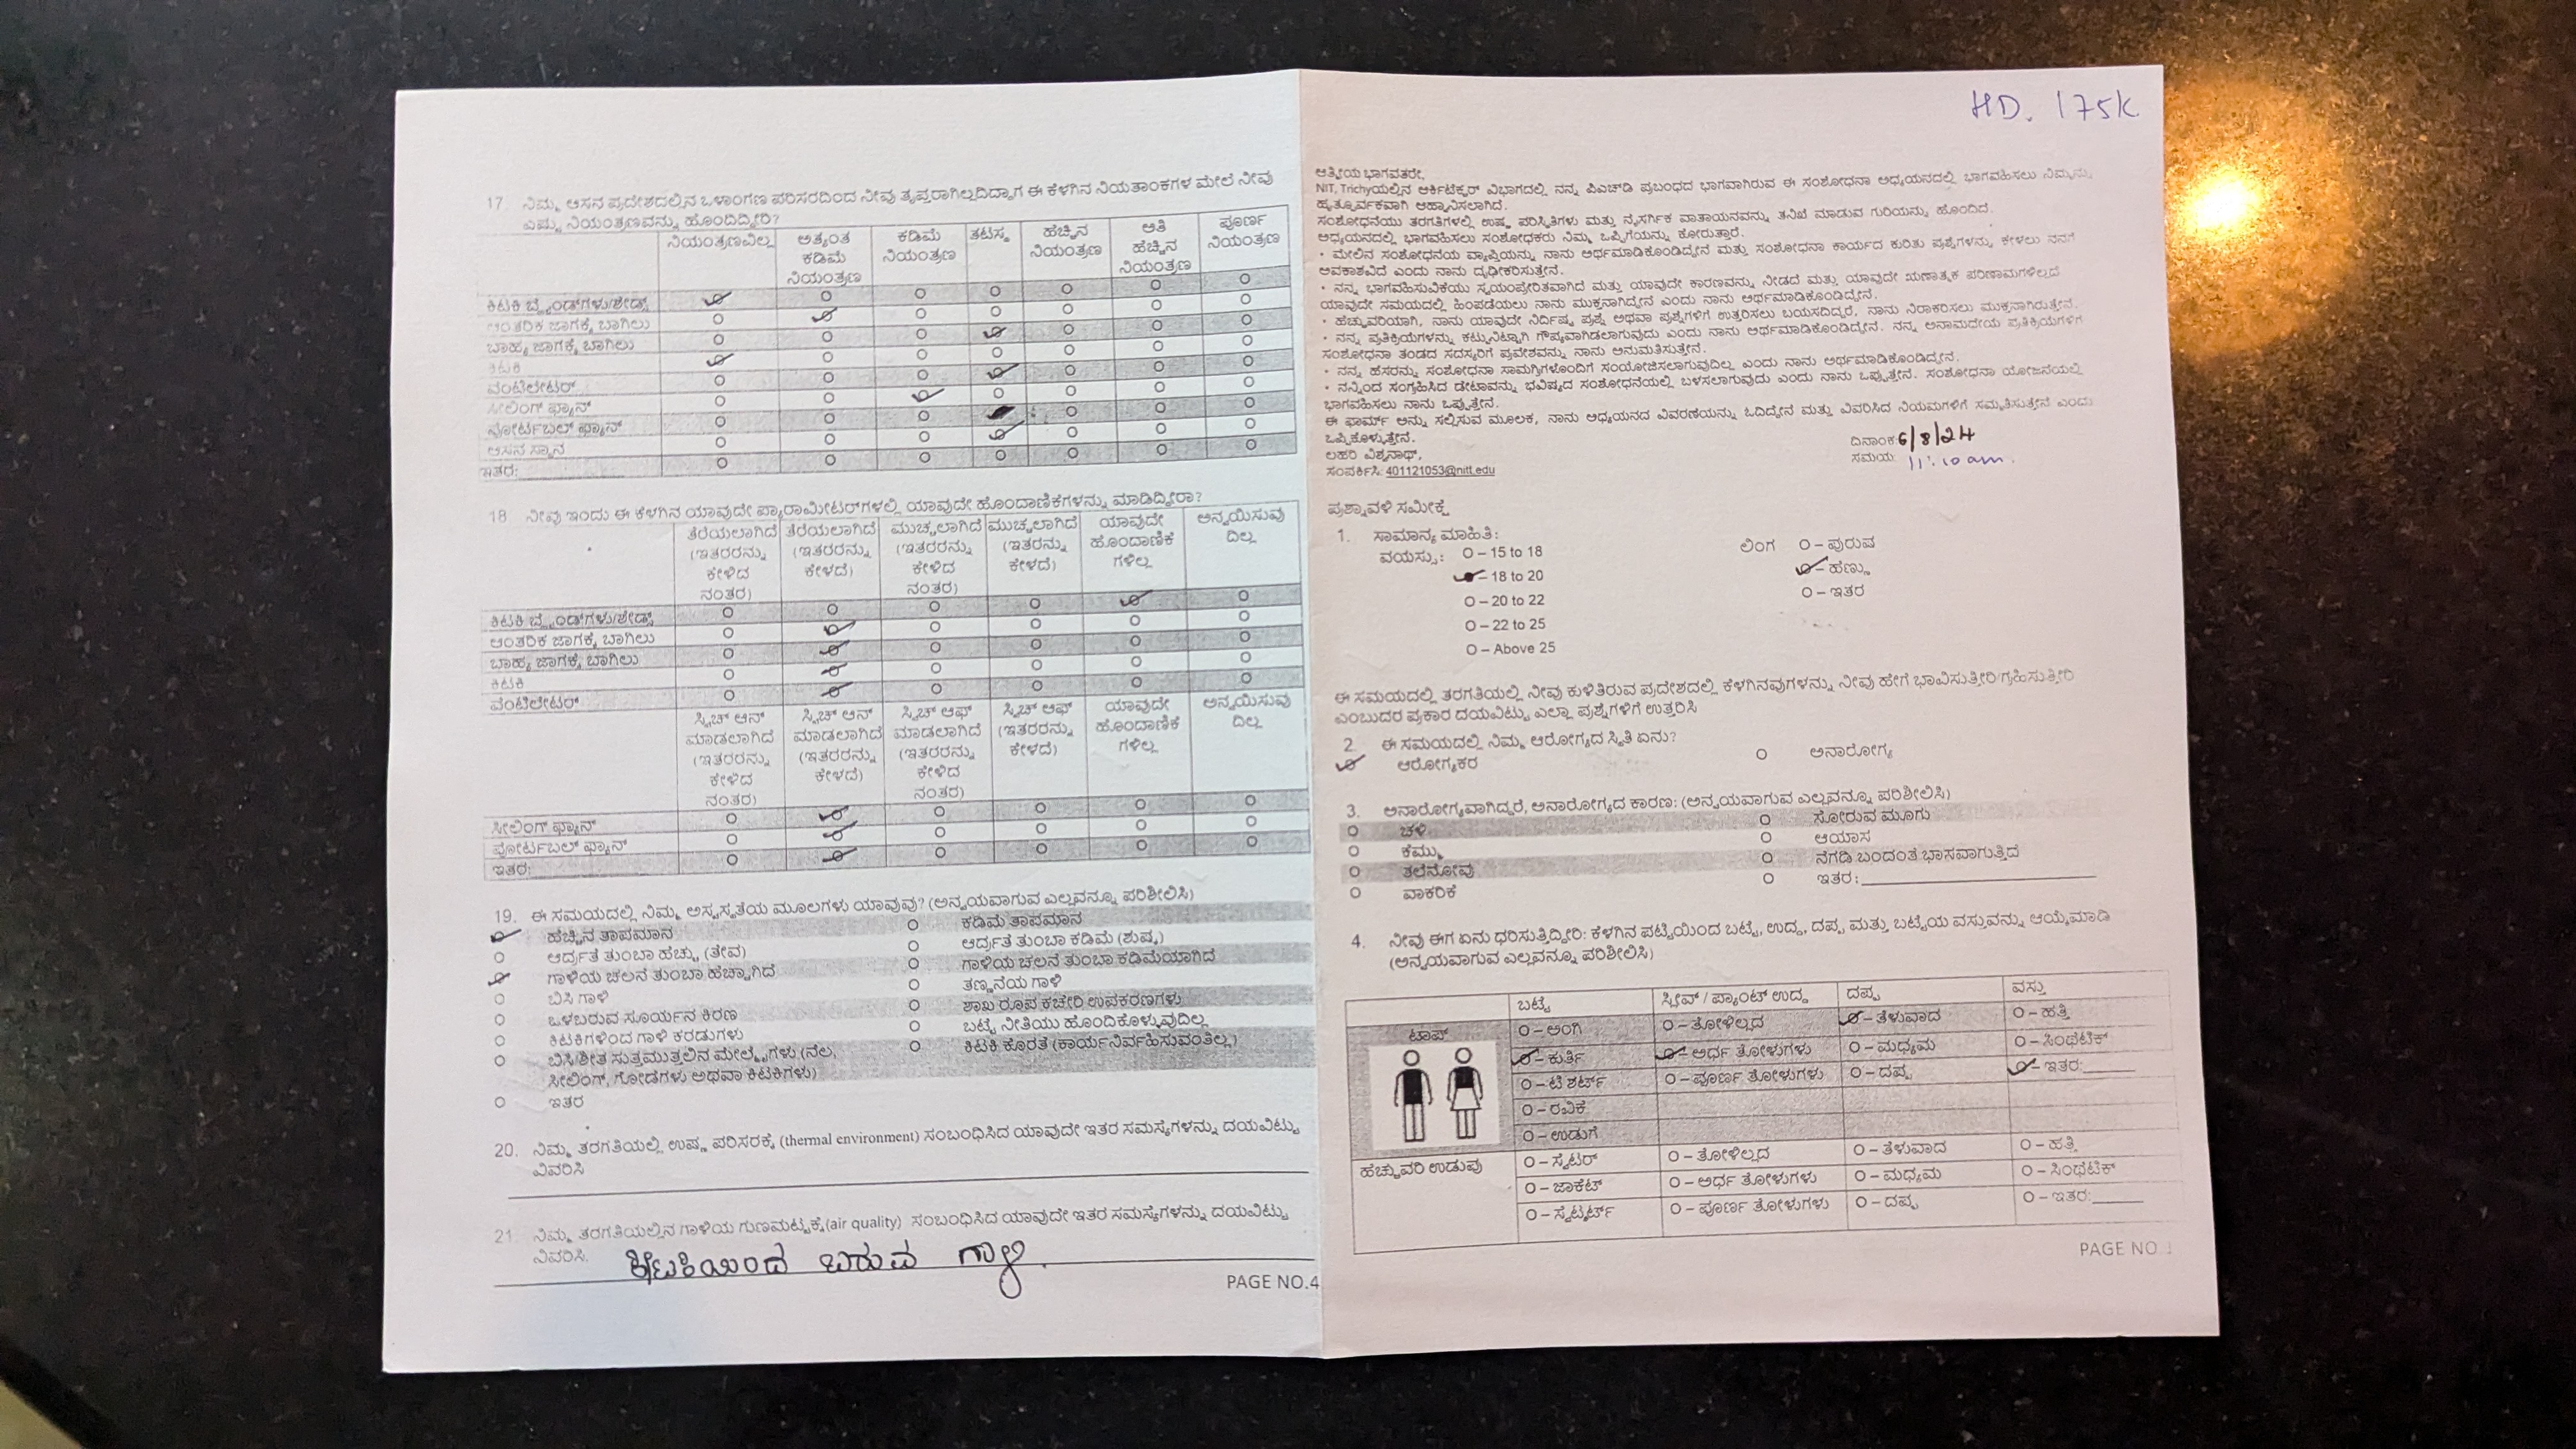 17. ನಿಮ್ಮ ಆಸನ ಪ್ರದೇಶದಲ್ಲಿನ ಒಳಾಂಗಣ ಪರಿಸರದಿಂದ ನೀವು ತೃಪ್ತರಾಗಿಲ್ಲದಿದ್ದಾಗ ಈ ಕೆಳಗಿನ ನಿಯತಾಂಕಗಳ ಮೇಲೆ ನೀವು
ಎಷ್ಟು ನಿಯಂತ್ರಣವನ್ನು ಹೊಂದಿದ್ದೀರಿ?
ನಿಯಂತ್ರಣವಿಲ್ಲ ಅತ್ಯಂತ ಕಡಿಮೆ ನಿಯಂತ್ರಣ ಕಡಿಮೆ ನಿಯಂತ್ರಣ ತಟಸ್ಥ ಹೆಚ್ಚಿನ ನಿಯಂತ್ರಣ ಅತಿ ಹೆಚ್ಚಿನ ನಿಯಂತ್ರಣ ಪೂರ್ಣ ನಿಯಂತ್ರಣ
ಕಿಟಕಿ ಬ್ಲೈಂಡ್‌ಗಳು/ಶೇಡ್ಸ್
ಆಂತರಿಕ ಜಾಗಕ್ಕೆ ಬಾಗಿಲು
ಬಾಹ್ಯ ಜಾಗಕ್ಕೆ ಬಾಗಿಲು
ಕಿಟಕಿ
ವೆಂಟಿಲೇಟರ್
ಸೀಲಿಂಗ್ ಫ್ಯಾನ್
ಪೋರ್ಟಬಲ್ ಫ್ಯಾನ್
ಆಸನ ಸ್ಥಾನ
ಇತರ:
18 ನೀವು ಇಂದು ಈ ಕೆಳಗಿನ ಯಾವುದೇ ಪ್ಯಾರಾಮೀಟರ್‌ಗಳಲ್ಲಿ ಯಾವುದೇ ಹೊಂದಾಣಿಕೆಗಳನ್ನು ಮಾಡಿದ್ದೀರಾ?
ತೆರೆಯಲಾಗಿದೆ (ಇತರರನ್ನು ಕೇಳಿದ ನಂತರ) ತೆರೆಯಲಾಗಿದೆ (ಇತರರನ್ನು ಕೇಳದೆ) ಮುಚ್ಚಲಾಗಿದೆ (ಇತರರನ್ನು ಕೇಳಿದ ನಂತರ) ಮುಚ್ಚಲಾಗಿದೆ (ಇತರರನ್ನು ಕೇಳದೆ) ಯಾವುದೇ ಹೊಂದಾಣಿಕೆ ಗಳಿಲ್ಲ ಅನ್ವಯಿಸುವು ದಿಲ್ಲ
ಕಿಟಕಿ ಬ್ಲೈಂಡ್‌ಗಳು/ಶೇಡ್ಸ್
ಆಂತರಿಕ ಜಾಗಕ್ಕೆ ಬಾಗಿಲು
ಬಾಹ್ಯ ಜಾಗಕ್ಕೆ ಬಾಗಿಲು
ಕಿಟಕಿ
ವೆಂಟಿಲೇಟರ್
ಸ್ವಿಚ್ ಆನ್ ಮಾಡಲಾಗಿದೆ (ಇತರರನ್ನು ಕೇಳಿದ ನಂತರ) ಸ್ವಿಚ್ ಆನ್ ಮಾಡಲಾಗಿದೆ (ಇತರರನ್ನು ಕೇಳದೆ) ಸ್ವಿಚ್ ಆಫ್ ಮಾಡಲಾಗಿದೆ (ಇತರರನ್ನು ಕೇಳಿದ ನಂತರ) ಸ್ವಿಚ್ ಆಫ್ (ಇತರರನ್ನು ಕೇಳದೆ) ಯಾವುದೇ ಹೊಂದಾಣಿಕೆ ಗಳಿಲ್ಲ ಅನ್ವಯಿಸುವು ದಿಲ್ಲ
ಸೀಲಿಂಗ್ ಫ್ಯಾನ್
ಪೋರ್ಟಬಲ್ ಫ್ಯಾನ್
ಇತರ:
19. ಈ ಸಮಯದಲ್ಲಿ ನಿಮ್ಮ ಅಸ್ವಸ್ಥತೆಯ ಮೂಲಗಳು ಯಾವುವು? (ಅನ್ವಯವಾಗುವ ಎಲ್ಲವನ್ನೂ ಪರಿಶೀಲಿಸಿ)
ಹೆಚ್ಚಿನ ತಾಪಮಾನ ಕಡಿಮೆ ತಾಪಮಾನ
ಆರ್ದ್ರತೆ ತುಂಬಾ ಹೆಚ್ಚು (ತೇವ) ಆರ್ದ್ರತೆ ತುಂಬಾ ಕಡಿಮೆ (ಶುಷ್ಕ)
ಗಾಳಿಯ ಚಲನೆ ತುಂಬಾ ಹೆಚ್ಚಾಗಿದೆ ಗಾಳಿಯ ಚಲನೆ ತುಂಬಾ ಕಡಿಮೆಯಾಗಿದೆ
ಬಿಸಿ ಗಾಳಿ ತಣ್ಣನೆಯ ಗಾಳಿ
ಒಳಬರುವ ಸೂರ್ಯನ ಕಿರಣ ಶಾಖ ರೂಪ ಕಚೇರಿ ಉಪಕರಣಗಳು
ಕಿಟಕಿಗಳಿಂದ ಗಾಳಿ ಕರಡುಗಳು ಬಟ್ಟೆ ನೀತಿಯು ಹೊಂದಿಕೊಳ್ಳುವುದಿಲ್ಲ
ಬಿಸಿ/ಶೀತ ಸುತ್ತಮುತ್ತಲಿನ ಮೇಲ್ಮೈಗಳು (ನೆಲ, ಕಿಟಕಿ ಕೊರತೆ (ಕಾರ್ಯನಿರ್ವಹಿಸುವಂತಿಲ್ಲ)
ಸೀಲಿಂಗ್, ಗೋಡೆಗಳು ಅಥವಾ ಕಿಟಕಿಗಳು)
ಇತರ
20. ನಿಮ್ಮ ತರಗತಿಯಲ್ಲಿ ಉಷ್ಣ ಪರಿಸರಕ್ಕೆ (thermal environment) ಸಂಬಂಧಿಸಿದ ಯಾವುದೇ ಇತರ ಸಮಸ್ಯೆಗಳನ್ನು ದಯವಿಟ್ಟು
ವಿವರಿಸಿ
21. ನಿಮ್ಮ ತರಗತಿಯಲ್ಲಿನ ಗಾಳಿಯ ಗುಣಮಟ್ಟಕ್ಕೆ(air quality) ಸಂಬಂಧಿಸಿದ ಯಾವುದೇ ಇತರ ಸಮಸ್ಯೆಗಳನ್ನು ದಯವಿಟ್ಟು
ವಿವರಿಸಿ. ಕಿಟಕಿಯಿಂದ ಬರುವ ಗಾಳಿ.
PAGE NO.4
HD. 175K
ಆತ್ಮೀಯ ಭಾಗವತರೇ,
NIT, Trichyಯಲ್ಲಿನ ಆರ್ಕಿಟೆಕ್ಚರ್ ವಿಭಾಗದಲ್ಲಿ ನನ್ನ ಪಿಎಚ್‌ಡಿ ಪ್ರಬಂಧದ ಭಾಗವಾಗಿರುವ ಈ ಸಂಶೋಧನಾ ಅಧ್ಯಯನದಲ್ಲಿ ಭಾಗವಹಿಸಲು ನಿಮ್ಮನ್ನು
ಹೃತ್ಪೂರ್ವಕವಾಗಿ ಆಹ್ವಾನಿಸಲಾಗಿದೆ.
ಸಂಶೋಧನೆಯು ತರಗತಿಗಳಲ್ಲಿ ಉಷ್ಣ ಪರಿಸ್ಥಿತಿಗಳು ಮತ್ತು ನೈಸರ್ಗಿಕ ವಾತಾಯನವನ್ನು ತನಿಖೆ ಮಾಡುವ ಗುರಿಯನ್ನು ಹೊಂದಿದೆ.
ಅಧ್ಯಯನದಲ್ಲಿ ಭಾಗವಹಿಸಲು ಸಂಶೋಧಕರು ನಿಮ್ಮ ಒಪ್ಪಿಗೆಯನ್ನು ಕೋರುತ್ತಾರೆ.
• ಮೇಲಿನ ಸಂಶೋಧನೆಯ ವ್ಯಾಪ್ತಿಯನ್ನು ನಾನು ಅರ್ಥಮಾಡಿಕೊಂಡಿದ್ದೇನೆ ಮತ್ತು ಸಂಶೋಧನಾ ಕಾರ್ಯದ ಕುರಿತು ಪ್ರಶ್ನೆಗಳನ್ನು ಕೇಳಲು ನನಗೆ
ಅವಕಾಶವಿದೆ ಎಂದು ನಾನು ದೃಢೀಕರಿಸುತ್ತೇನೆ.
• ನನ್ನ ಭಾಗವಹಿಸುವಿಕೆಯು ಸ್ವಯಂಪ್ರೇರಿತವಾಗಿದೆ ಮತ್ತು ಯಾವುದೇ ಕಾರಣವನ್ನು ನೀಡದೆ ಮತ್ತು ಯಾವುದೇ ಋಣಾತ್ಮಕ ಪರಿಣಾಮಗಳಿಲ್ಲದೆ
ಯಾವುದೇ ಸಮಯದಲ್ಲಿ ಹಿಂಪಡೆಯಲು ನಾನು ಮುಕ್ತನಾಗಿದ್ದೇನೆ ಎಂದು ನಾನು ಅರ್ಥಮಾಡಿಕೊಂಡಿದ್ದೇನೆ.
• ಹೆಚ್ಚುವರಿಯಾಗಿ, ನಾನು ಯಾವುದೇ ನಿರ್ದಿಷ್ಟ ಪ್ರಶ್ನೆ ಅಥವಾ ಪ್ರಶ್ನೆಗಳಿಗೆ ಉತ್ತರಿಸಲು ಬಯಸದಿದ್ದರೆ, ನಾನು ನಿರಾಕರಿಸಲು ಮುಕ್ತನಾಗಿರುತ್ತೇನೆ.
• ನನ್ನ ಪ್ರತಿಕ್ರಿಯೆಗಳನ್ನು ಕಟ್ಟುನಿಟ್ಟಾಗಿ ಗೌಪ್ಯವಾಗಿಡಲಾಗುವುದು ಎಂದು ನಾನು ಅರ್ಥಮಾಡಿಕೊಂಡಿದ್ದೇನೆ. ನನ್ನ ಅನಾಮಧೇಯ ಪ್ರತಿಕ್ರಿಯೆಗಳಿಗೆ
ಸಂಶೋಧನಾ ತಂಡದ ಸದಸ್ಯರಿಗೆ ಪ್ರವೇಶವನ್ನು ನಾನು ಅನುಮತಿಸುತ್ತೇನೆ.
• ನನ್ನ ಹೆಸರನ್ನು ಸಂಶೋಧನಾ ಸಾಮಗ್ರಿಗಳೊಂದಿಗೆ ಸಂಯೋಜಿಸಲಾಗುವುದಿಲ್ಲ ಎಂದು ನಾನು ಅರ್ಥಮಾಡಿಕೊಂಡಿದ್ದೇನೆ.
• ನನ್ನಿಂದ ಸಂಗ್ರಹಿಸಿದ ಡೇಟಾವನ್ನು ಭವಿಷ್ಯದ ಸಂಶೋಧನೆಯಲ್ಲಿ ಬಳಸಲಾಗುವುದು ಎಂದು ನಾನು ಒಪ್ಪುತ್ತೇನೆ. ಸಂಶೋಧನಾ ಯೋಜನೆಯಲ್ಲಿ
ಭಾಗವಹಿಸಲು ನಾನು ಒಪ್ಪುತ್ತೇನೆ.
ಈ ಫಾರ್ಮ್ ಅನ್ನು ಸಲ್ಲಿಸುವ ಮೂಲಕ, ನಾನು ಅಧ್ಯಯನದ ವಿವರಣೆಯನ್ನು ಓದಿದ್ದೇನೆ ಮತ್ತು ವಿವರಿಸಿದ ನಿಯಮಗಳಿಗೆ ಸಮ್ಮತಿಸುತ್ತೇನೆ ಎಂದು
ಒಪ್ಪಿಕೊಳ್ಳುತ್ತೇನೆ.
ದಿನಾಂಕ:6/8/24
ಲಹರಿ ವಿಶ್ವನಾಥ್,
ಸಮಯ: 11:10 am.
ಸಂಪರ್ಕಿಸಿ: 401121053@nitt.edu
ಪ್ರಶ್ನಾವಳಿ ಸಮೀಕ್ಷೆ
1. ಸಾಮಾನ್ಯ ಮಾಹಿತಿ:
ವಯಸ್ಸು: O – 15 to 18 ಲಿಂಗ O – ಪುರುಷ
– 18 to 20 – ಹೆಣ್ಣು
O – 20 to 22 O – ಇತರ
O – 22 to 25
O – Above 25
ಈ ಸಮಯದಲ್ಲಿ ತರಗತಿಯಲ್ಲಿ ನೀವು ಕುಳಿತಿರುವ ಪ್ರದೇಶದಲ್ಲಿ ಕೆಳಗಿನವುಗಳನ್ನು ನೀವು ಹೇಗೆ ಭಾವಿಸುತ್ತೀರಿ/ಗ್ರಹಿಸುತ್ತೀರಿ
ಎಂಬುದರ ಪ್ರಕಾರ ದಯವಿಟ್ಟು ಎಲ್ಲಾ ಪ್ರಶ್ನೆಗಳಿಗೆ ಉತ್ತರಿಸಿ
2. ಈ ಸಮಯದಲ್ಲಿ ನಿಮ್ಮ ಆರೋಗ್ಯದ ಸ್ಥಿತಿ ಏನು?
ಆರೋಗ್ಯಕರ O ಅನಾರೋಗ್ಯ
3. ಅನಾರೋಗ್ಯವಾಗಿದ್ದರೆ, ಅನಾರೋಗ್ಯದ ಕಾರಣ: (ಅನ್ವಯವಾಗುವ ಎಲ್ಲವನ್ನೂ ಪರಿಶೀಲಿಸಿ)
O ಚಳಿ O ಸೋರುವ ಮೂಗು
O ಕೆಮ್ಮು O ಆಯಾಸ
O ತಲೆನೋವು O ನೆಗಡಿ ಬಂದಂತೆ ಭಾಸವಾಗುತ್ತಿದೆ
O ವಾಕರಿಕೆ O ಇತರ:
4. ನೀವು ಈಗ ಏನು ಧರಿಸುತ್ತಿದ್ದೀರಿ: ಕೆಳಗಿನ ಪಟ್ಟಿಯಿಂದ ಬಟ್ಟೆ, ಉದ್ದ, ದಪ್ಪ ಮತ್ತು ಬಟ್ಟೆಯ ವಸ್ತುವನ್ನು ಆಯ್ಕೆಮಾಡಿ
(ಅನ್ವಯವಾಗುವ ಎಲ್ಲವನ್ನೂ ಪರಿಶೀಲಿಸಿ)
ಬಟ್ಟೆ ಸ್ಲೀವ್ / ಪ್ಯಾಂಟ್ ಉದ್ದ ದಪ್ಪ ವಸ್ತು
ಟಾಪ್ O – ಅಂಗಿ O – ತೋಳಿಲ್ಲದ – ತೆಳುವಾದ O – ಹತ್ತಿ
– ಕುರ್ತಿ – ಅರ್ಧ ತೋಳುಗಳು O – ಮಧ್ಯಮ O – ಸಿಂಥೆಟಿಕ್
O – ಟಿ ಶರ್ಟ್ O – ಪೂರ್ಣ ತೋಳುಗಳು O – ದಪ್ಪ – ಇತರ:
O – ರವಿಕೆ
O – ಉಡುಗೆ
ಹೆಚ್ಚುವರಿ ಉಡುಪು O – ಸ್ವೆಟರ್ O – ತೋಳಿಲ್ಲದ O – ತೆಳುವಾದ O – ಹತ್ತಿ
O – ಜಾಕೆಟ್ O – ಅರ್ಧ ತೋಳುಗಳು O – ಮಧ್ಯಮ O – ಸಿಂಥೆಟಿಕ್
O – ಸ್ವೆಟ್ಶರ್ಟ್ O – ಪೂರ್ಣ ತೋಳುಗಳು O – ದಪ್ಪ O – ಇತರ:
PAGE NO.1